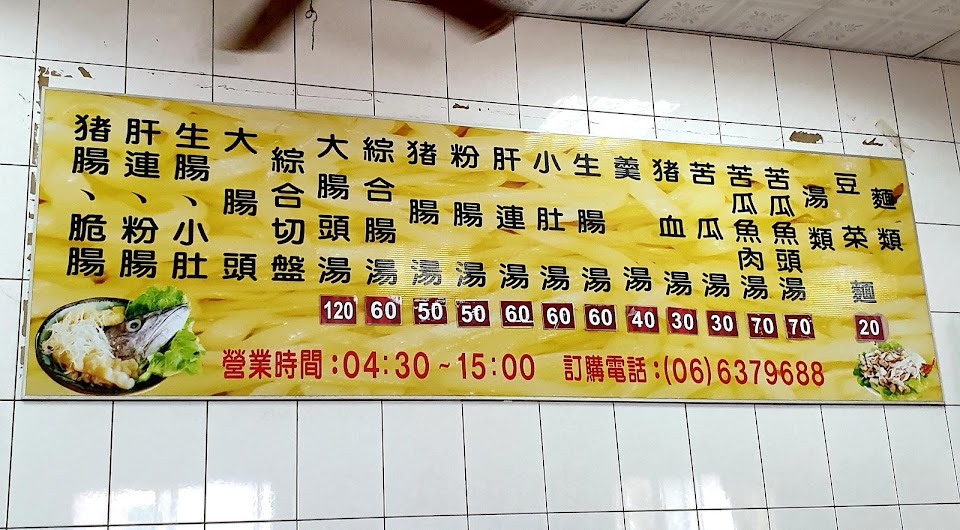 麵類
豆菜麵
20
湯類
苦瓜魚頭湯
70
苦瓜魚肉湯
70
苦瓜湯
30
猪血湯
30
羹湯
40
生腸湯
60
小肚湯
60
肝連湯
60
粉腸湯
50
猪腸湯
50
綜合腸湯
60
大腸頭湯
120
綜合切盤
大腸頭
生腸、小肚
肝連、粉腸
猪腸、脆腸
營業時間：04:30~15:00 訂購電話：(06)6379688